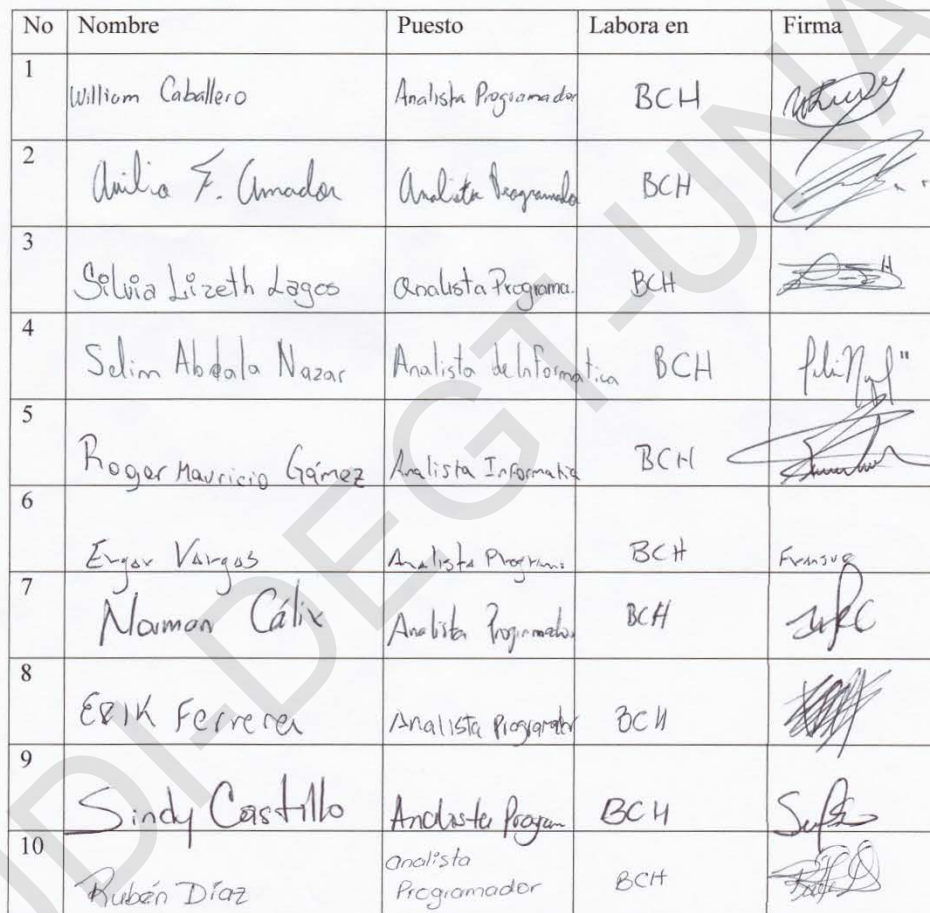 No Nombre Puesto Labora en Firma
1 William Caballero Analista Programador BCH
2 F. Amador Analista Programador BCH
3 Silvia Lizeth Lagos Analista Programa. BCH
4 Selim Abdala Nazar Analista de Informatica BCH
5 Roger Mauricio Gámez Analista Informatica BCH
6 Vargas Analista BCH
7 Norman Cálix Analista Programador BCH
8 ERIK Ferrera Analista Programador BCH
9 Sindy Castillo Analista Program BCH
10 Rubén Díaz analista Programador BCH
UDI-DEGT-UNA